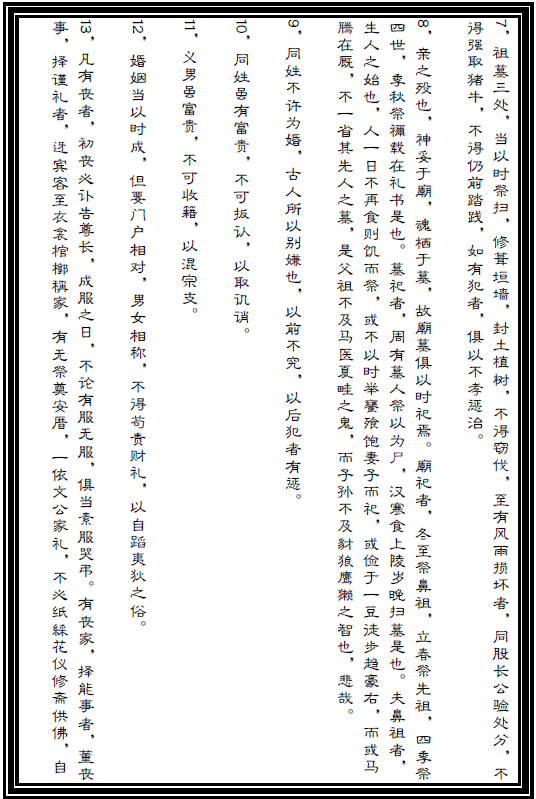 7，祖墓三处，当以时祭扫，修葺垣墙，封土植树，不得窃伐，至有风雨损坏者，同股长公验处分，不
得强取猪牛，不得仍前踏践，如有犯者，俱以不孝惩治。
8，亲之殁也，神妥于廟，魂栖于墓，故廟墓俱以时祀焉。廟祀者，冬至祭鼻祖，立春祭先祖，四季祭
四世，季秋祭禰载在礼书是也。墓祀者，周有墓人祭以为尸，汉寒食上陵岁晚扫墓是也。夫鼻祖者，
生人之始也，人一日不再食则饥而祭，或不以时举饔飧饱妻子而祀，或俭于一豆徒步趋豪右，而或马
腾在厩，不一省其先人之墓，是父祖不及马医夏畦之鬼，而子孙不及豺狼鹰獭之智也，悲哉。
9，同姓不许为婚，古人所以别嫌也，以前不究，以后犯者有惩。
10，同姓虽有富贵，不可扳认，以取讥诮。
11，义男虽富贵，不可收籍，以混宗支。
12，婚姻当以时成，但要门户相对，男女相称，不得苟贵财礼，以自蹈夷狄之俗。
13，凡有丧者，初丧必讣告尊长，成服之日，不论有服无服，俱当素服哭弔。有丧家，择能事者，董丧
事，择谨礼者，迓宾客至衣衾棺槨稱家，有无祭奠安厝，一依文公家礼，不必纸綵花仪修斋供佛，自